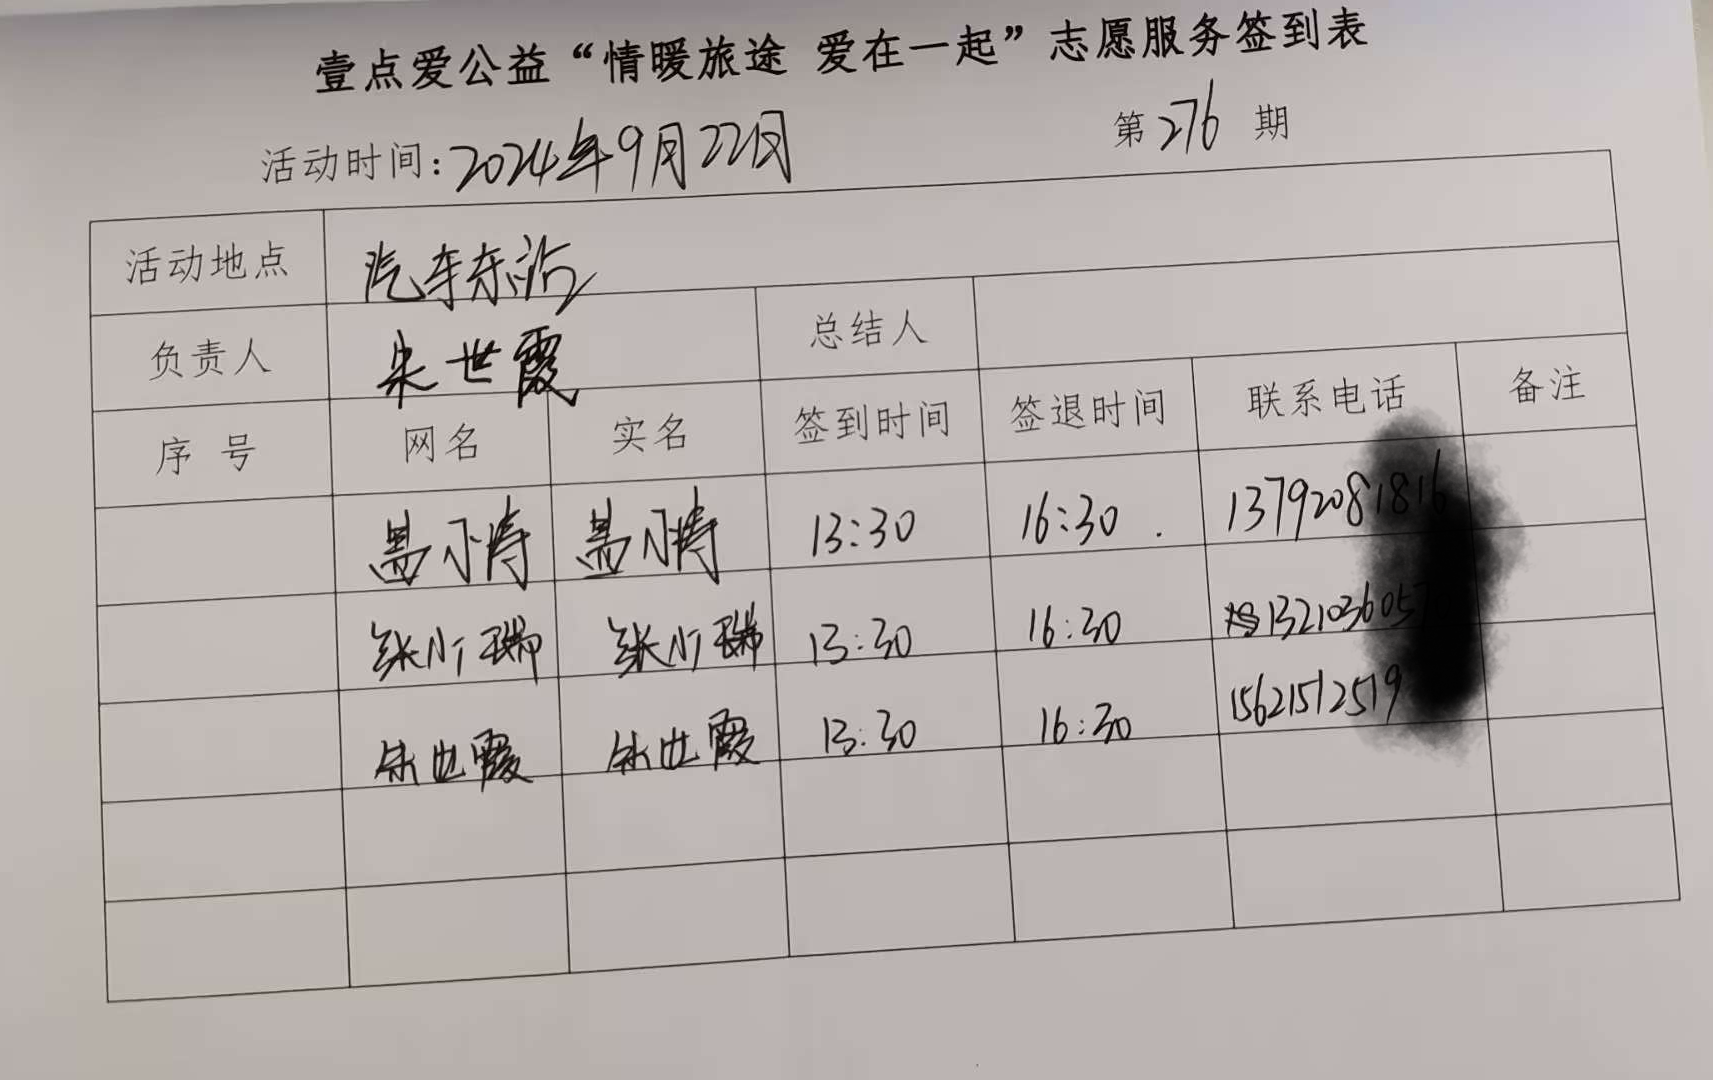 壹点爱公益“情暖旅途 爱在一起”志愿服务签到表
活动时间:2024年9月22日 第276期
活动地点 汽车东站
负责人 朱世霞 总结人
序号 网名 实名 签到时间 签退时间 联系电话 备注
13:30 16:30
张小瑞 张小瑞 13:30 16:30
朱世霞 朱世霞 13:30 16:30 15621512519